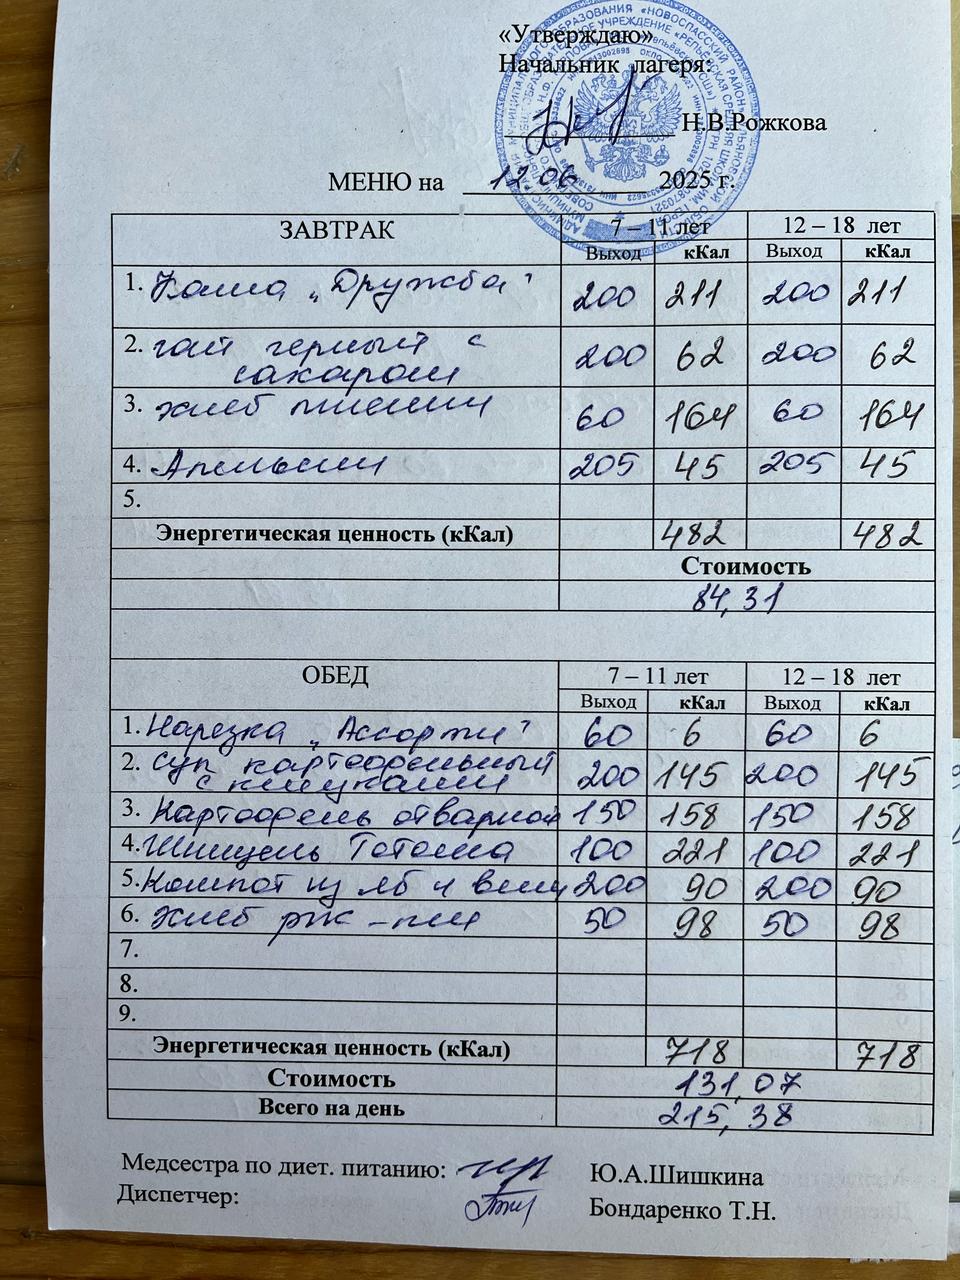 «Утверждаю»
Начальник лагеря:
Н.В.Рожкова
МЕНЮ на 17.06 2025 г.
ЗАВТРАК 7 – 11 лет 12 – 18 лет
Выход кКал Выход кКал
1. Каша „Дружба" 200 211 200 211
2. чай черный с
сахаром 200 62 200 62
3. хлеб пшен 60 164 60 164
4. Апельсин 205 45 205 45
5.
Энергетическая ценность (кКал) 482 482
Стоимость
84,31
ОБЕД 7 – 11 лет 12 – 18 лет
Выход кКал Выход кКал
1. Нарезка „Ассорти" 60 6 60 6
2. суп картофельный
с клецками 200 145 200 145
3. Картофель отварной 150 158 150 158
4. Шницель 100 221 100 221
5. Компот из яб и виш 200 90 200 90
6. хлеб рж-пш 50 98 50 98
7.
8.
9.
Энергетическая ценность (кКал) 718 718
Стоимость 131,07
Всего на день 215,38
Медсестра по диет. питанию: Ю.А.Шишкина
Диспетчер: Бондаренко Т.Н.